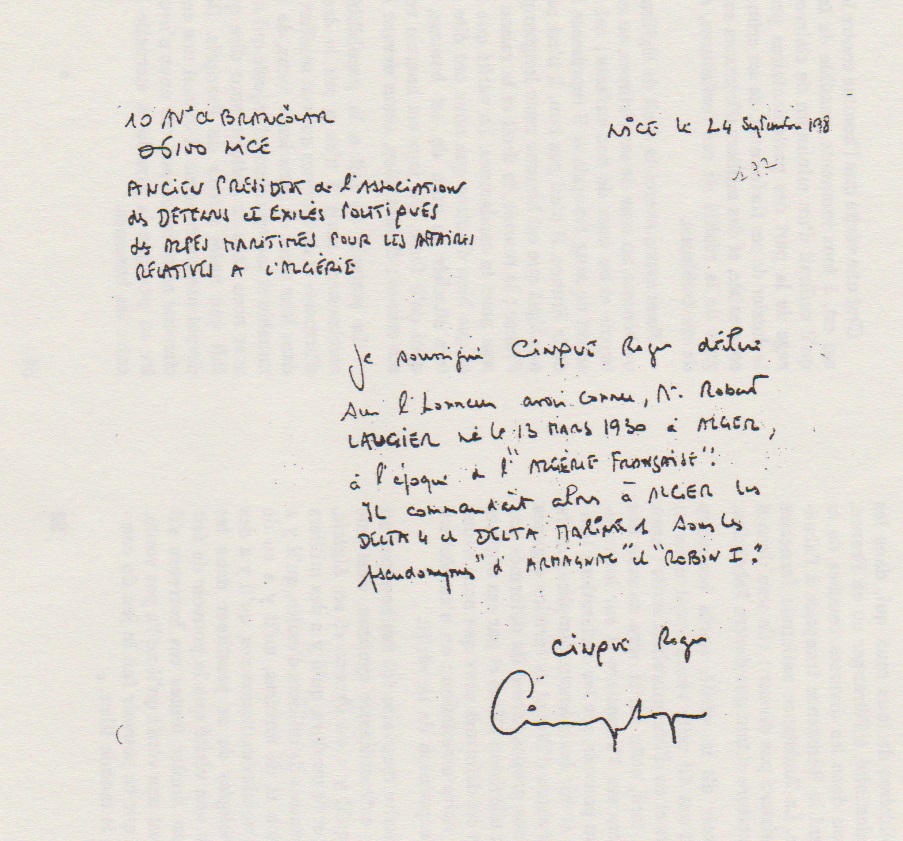 10 AVe de BRANCOLAR
06100 NICE
NICE le 24 Septembre 198
177
ANCIEN PRÉSIDENT de l'ASSOCIATION
des DÉTENUS et EXILÉS POLITIQUES
des ALPES MARITIMES POUR LES AFFAIRES
RELATIVES A L'ALGÉRIE
Je soussigné CINQUÉ Roger déclare
sur l'honneur avoir connu, Mr. Robert
LAUGIER né le 13 MARS 1930 à ALGER,
à l'époque de l'"ALGÉRIE FRANÇAISE".
IL commandait alors à ALGER les
DELTA 4 et DELTA MARINE 1 sous les
pseudonymes "d'ARMAGNAC" et "ROBIN I".
CINQUÉ Roger